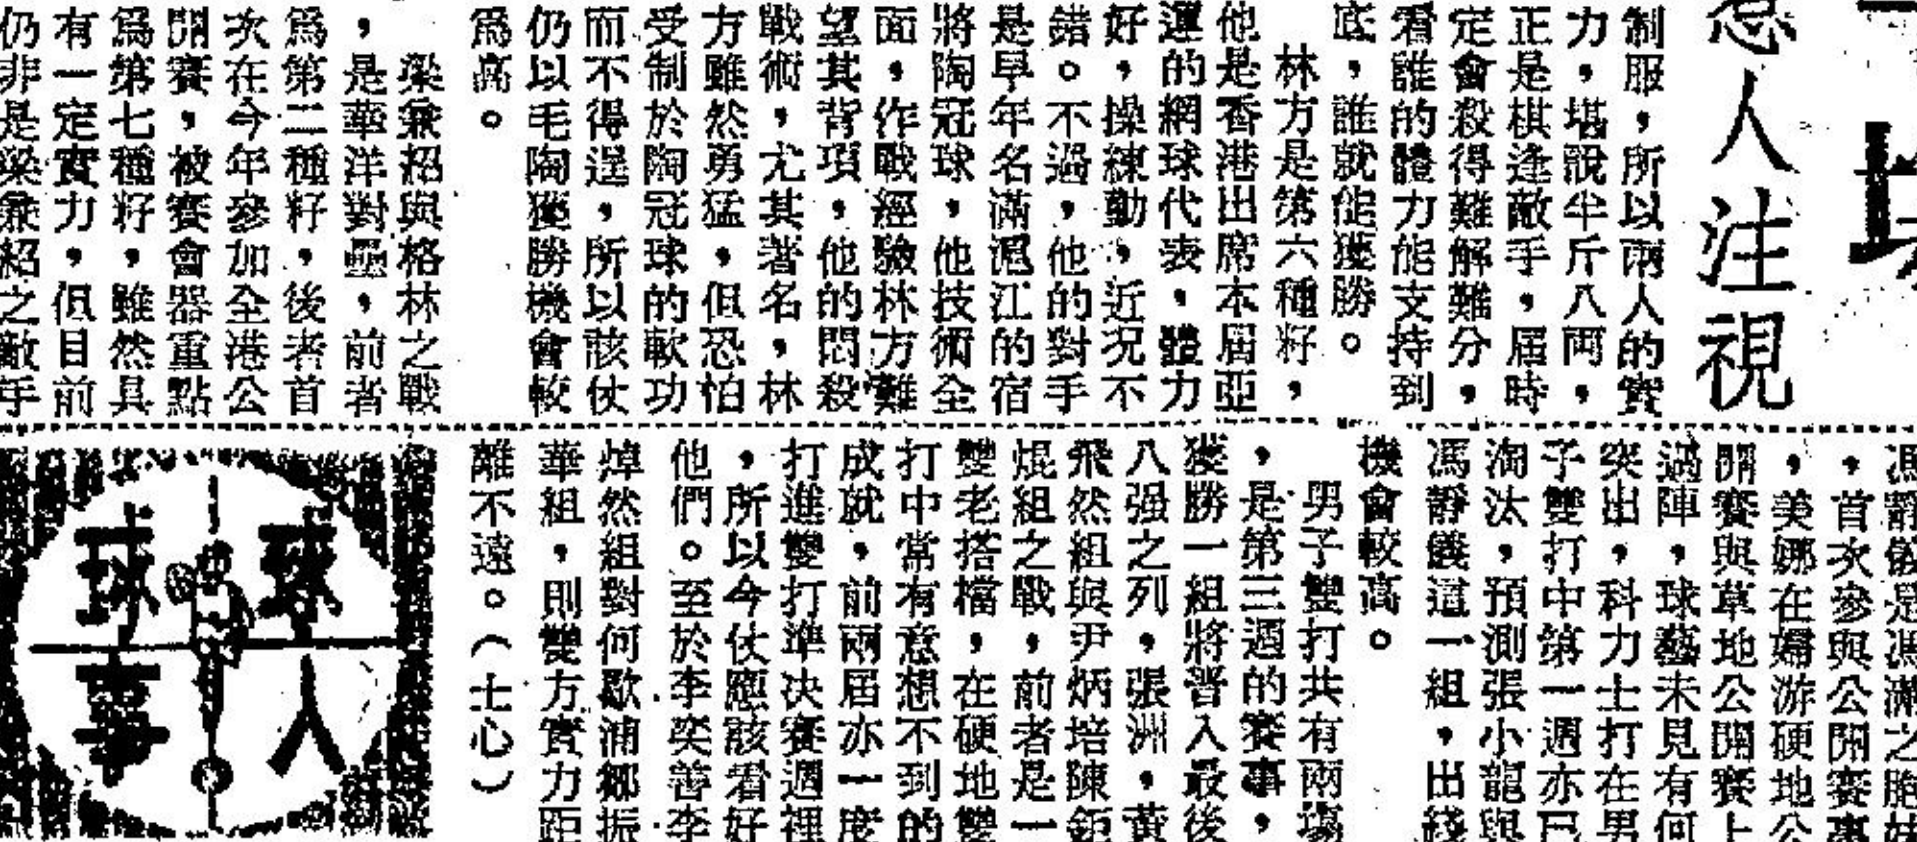 惹人注視
制服，所以兩人的實
力，堪說半斤八両，
正是棋逢敵手，屆時
定會殺得難解難分，
看誰的體力能支持到
底，誰就能獲勝。
林方是第六種籽，
他是香港出席本屆亞
運的網球代表，體力
好，操練勤，近況不
錯。不過，他的對手
是早年名滿滬江的宿
將陶冠球，他技術全
面，作戰經驗林方難
望其背項，他的悶殺
戰術，尤其著名，林
方雖然勇猛，但恐怕
受制於陶冠球的軟功
而不得逞，所以該仗
仍以毛陶獲勝機會較
爲高。
梁兼紹與格林之戰
，是華洋對壘，前者
爲第二種籽，後者首
次在今年參加全港公
開賽，被賽會器重點
爲第七種籽，雖然具
有一定實力，但目前
仍非是梁兼紹之敵手
馮靜儀是馮瀚之胞妹
，首次參與公開賽事
，美娜在婦游硬地公
開賽與草地公開賽上
過陣，球藝未見有何
突出，科力士打在男
子雙打中第一週亦已
淘汰，預測張小龍與
馮靜儀這一組，出綫
機會較高。
男子雙打共有兩塲
，是第三週的賽事，
獲勝一組將晋入最後
八强之列，張洲，黃
飛然組與尹炳培陳鉅
焜組之戰，前者是一
雙老搭檔，在硬地雙
打中常有意想不到的
成就，前兩屆亦一度
打進雙打準决賽週裡
，所以今仗應該看好
他們。至於李奕善李
焯然組對何歇浦鄉振
華組，則雙方實力距
離不遠。（士心）
球人
球事